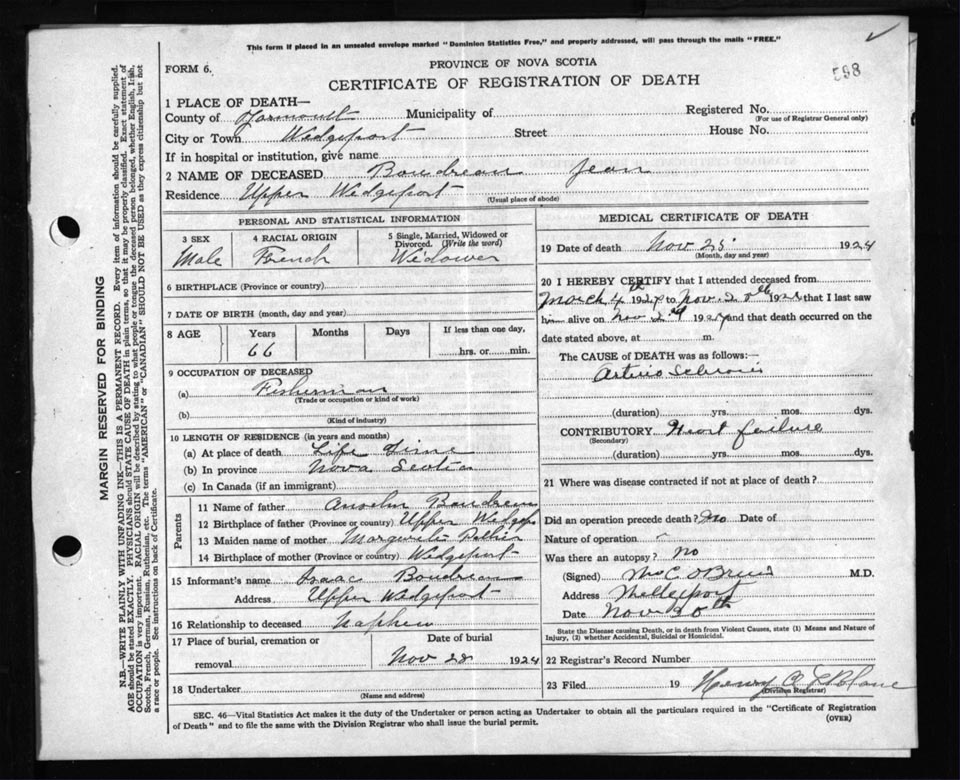 This form if placed in an unsealed envelope marked "Dominion Statistics Free," and properly addressed, will pass through the mails "FREE."
FORM 6.
PROVINCE OF NOVA SCOTIA
598
CERTIFICATE OF REGISTRATION OF DEATH
MARGIN RESERVED FOR BINDING
N.B.—WRITE PLAINLY WITH UNFADING INK—THIS IS A PERMANENT RECORD. Every item of information should be carefully supplied.
AGE should be stated EXACTLY. PHYSICIANS should STATE CAUSE OF DEATH in plain terms, so that it may be properly classified. Exact statement of
OCCUPATION is very important. RACIAL ORIGIN will be described by stating to what people or tongue the deceased person belonged, whether English, Irish,
Scotch, French, German, Russian, Ruthenian, etc. The terms "AMERICAN" or "CANADIAN" SHOULD NOT BE USED as they express citizenship but not
a race or people. See instructions on back of Certificate.
1 PLACE OF DEATH—
County of Yarmouth Municipality of Registered No.
(For use of Registrar General only)
City or Town Wedgeport Street House No.
If in hospital or institution, give name
2 NAME OF DECEASED Boudreau Jean
Residence Upper Wedgeport
(Usual place of abode)
PERSONAL AND STATISTICAL INFORMATION
3 SEX
Male
4 RACIAL ORIGIN
French
5 Single, Married, Widowed or
Divorced. (Write the word)
Widower
6 BIRTHPLACE (Province or country)
7 DATE OF BIRTH (month, day and year)
8 AGE
Years
66
Months
Days
If less than one day,
hrs. or min.
9 OCCUPATION OF DECEASED
(a) Fisherman
(Trade or occupation or kind of work)
(b)
(Kind of industry)
10 LENGTH OF RESIDENCE (in years and months)
(a) At place of death Life time
(b) In province Nova Scotia
(c) In Canada (if an immigrant)
Parents
11 Name of father Anselm Boudreau
12 Birthplace of father (Province or country) Upper Wedgep
13 Maiden name of mother Marguerite
14 Birthplace of mother (Province or country) Wedgeport
15 Informant's name Isaac Boudreau
Address Upper Wedgeport
16 Relationship to deceased Naphew
17 Place of burial, cremation or
removal
Date of burial
Nov 28 1924
18 Undertaker
(Name and address)
MEDICAL CERTIFICATE OF DEATH
19 Date of death Nov 25 1924
(Month, day and year)
20 I HEREBY CERTIFY that I attended deceased from
March 4th 192 to Nov. 192 that I last saw
him alive on Nov 192 and that death occurred on the
date stated above, at m.
The CAUSE of DEATH was as follows:—
Arterio Sclerosis
(duration) yrs. mos. dys.
CONTRIBUTORY Heart failure
(Secondary)
(duration) yrs. mos. dys.
21 Where was disease contracted if not at place of death?
Did an operation precede death? No Date of
Nature of operation
Was there an autopsy? No
(Signed) M.D.
Address
Date Nov
State the Disease causing Death, or in death from Violent Causes, state (1) Means and Nature of
Injury, (2) whether Accidental, Suicidal or Homicidal.
22 Registrar's Record Number
23 Filed 19 Henry A LeBlanc
(Division Registrar)
SEC. 46—Vital Statistics Act makes it the duty of the Undertaker or person acting as Undertaker to obtain all the particulars required in the "Certificate of Registration
of Death" and to file the same with the Division Registrar who shall issue the burial permit.
(OVER)